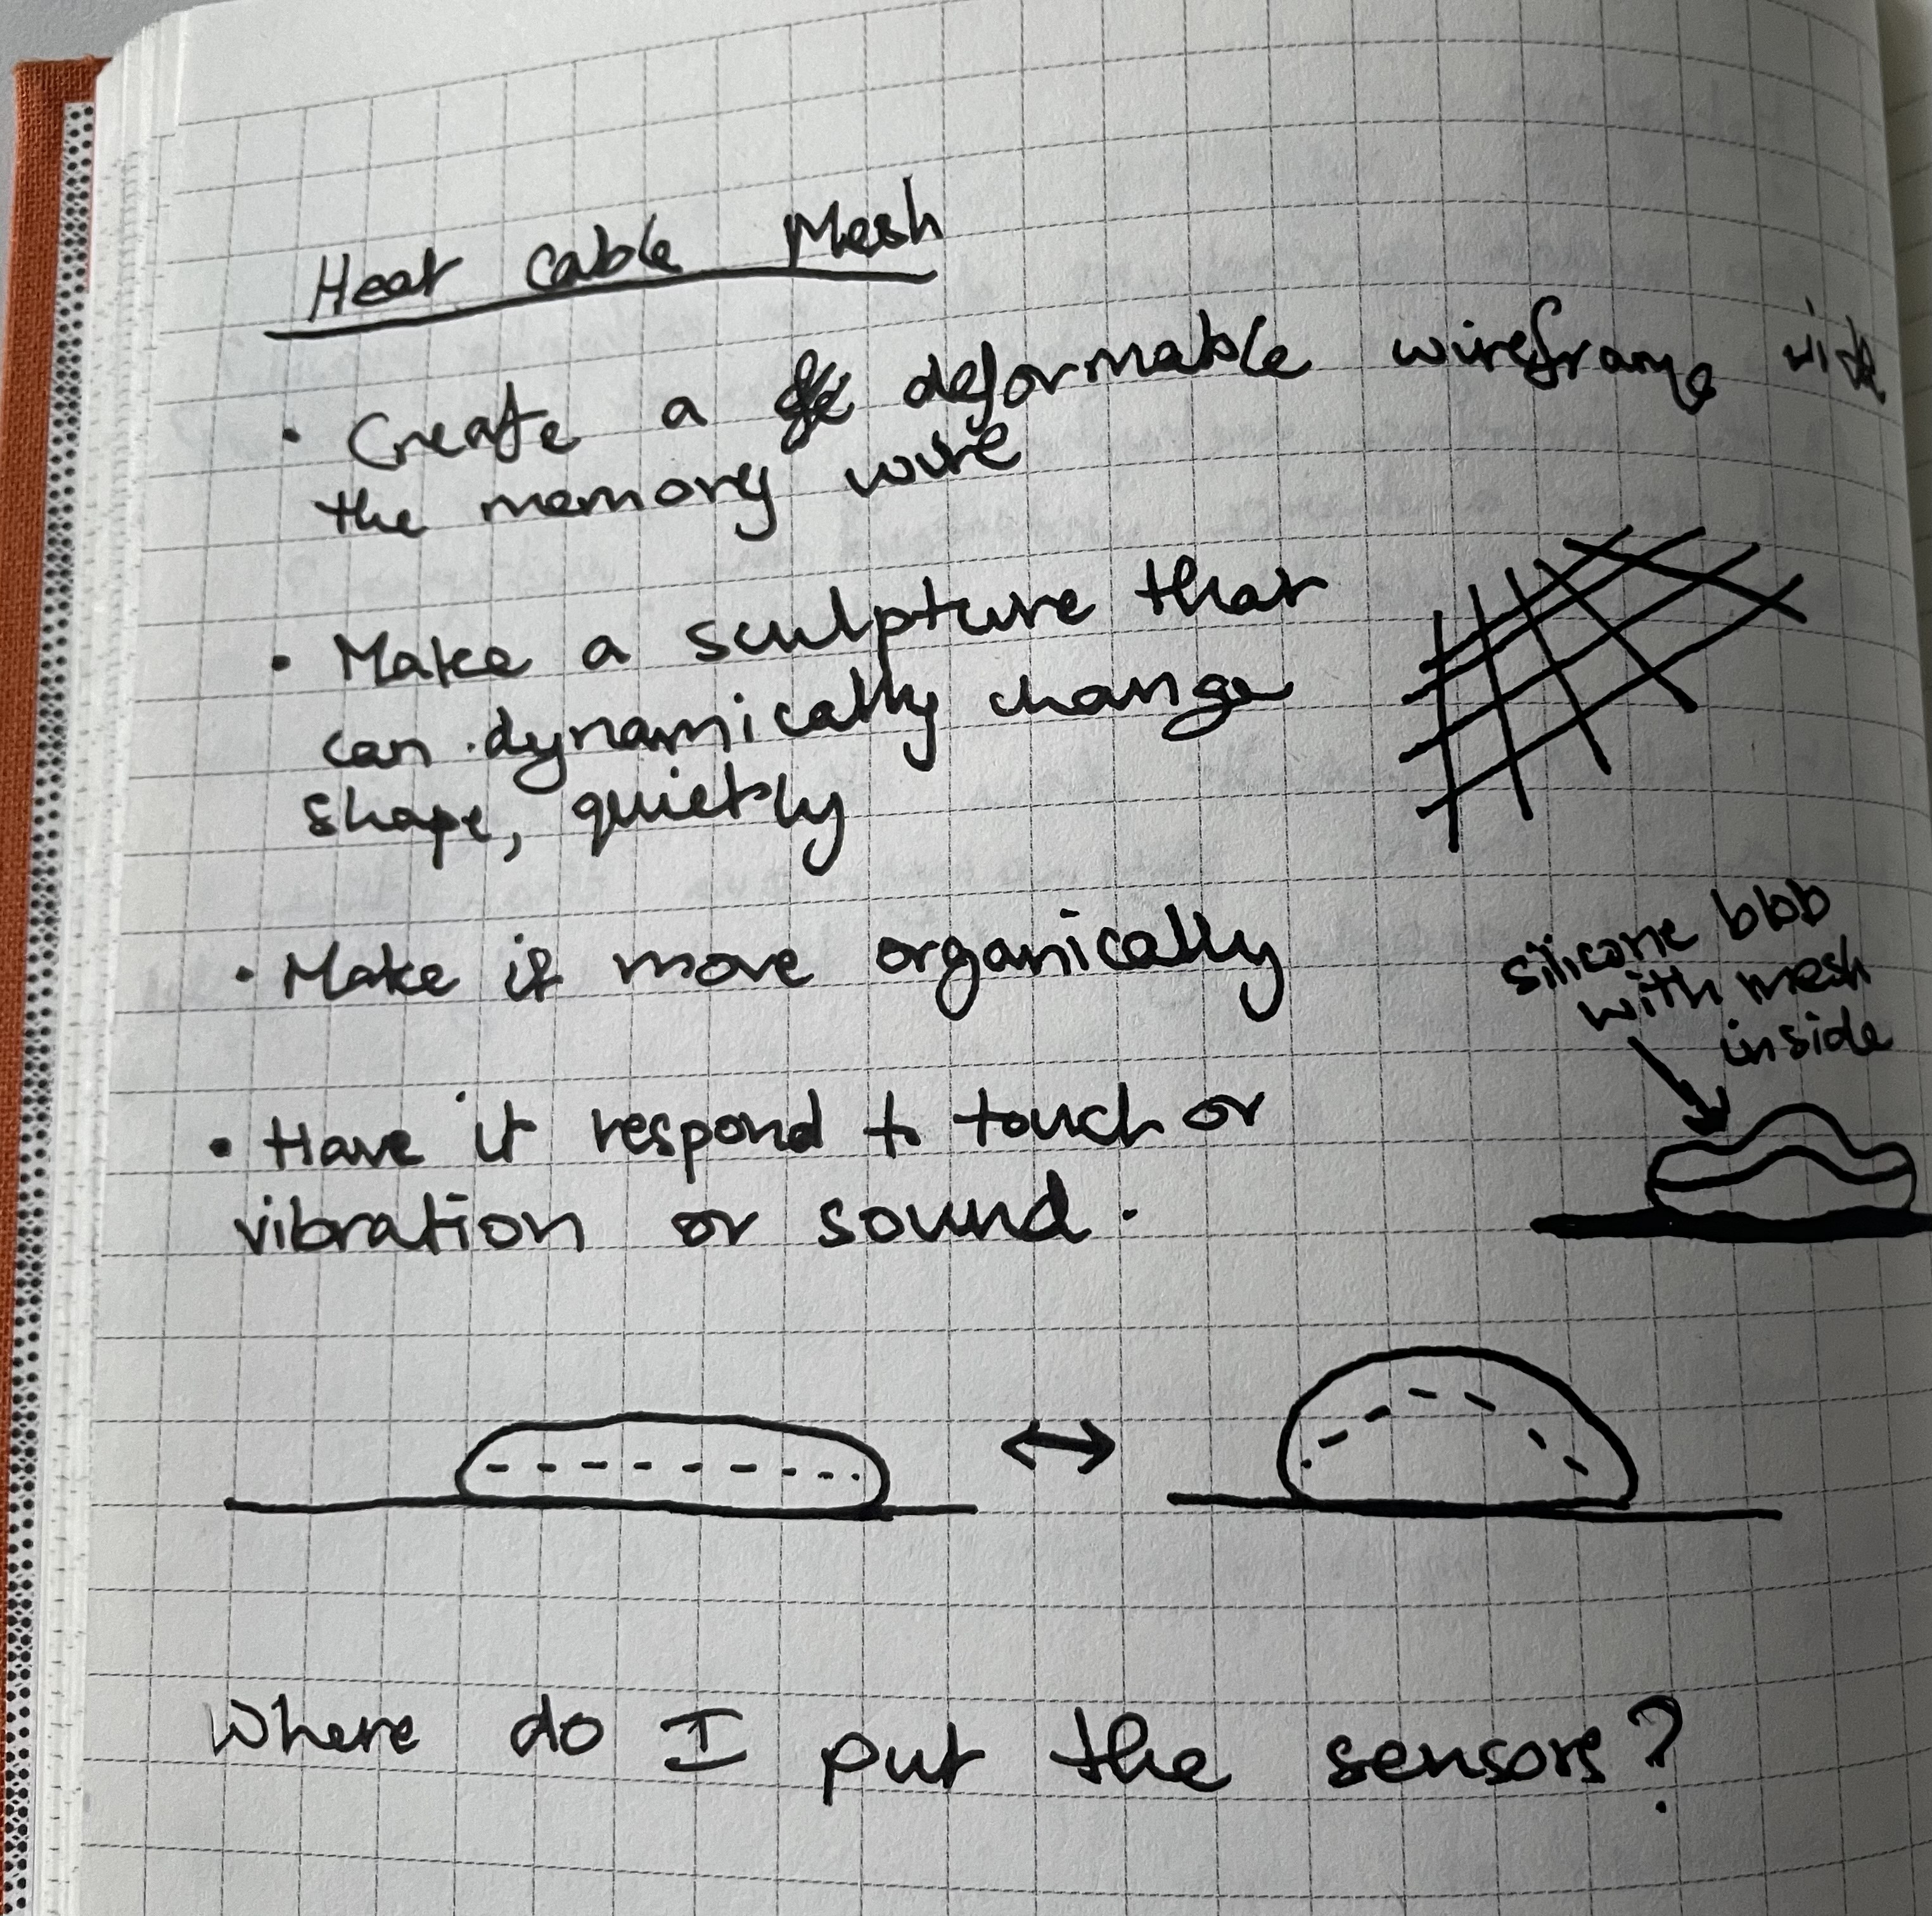 Heat cable Mesh
• Create a deformable wireframe with
the memory wire
• Make a sculpture that
can dynamically change
shape, quietly
• Make it move organically
silicone blob
with mesh
inside
• Have it respond to touch or
vibration or sound.
Where do I put the sensors?